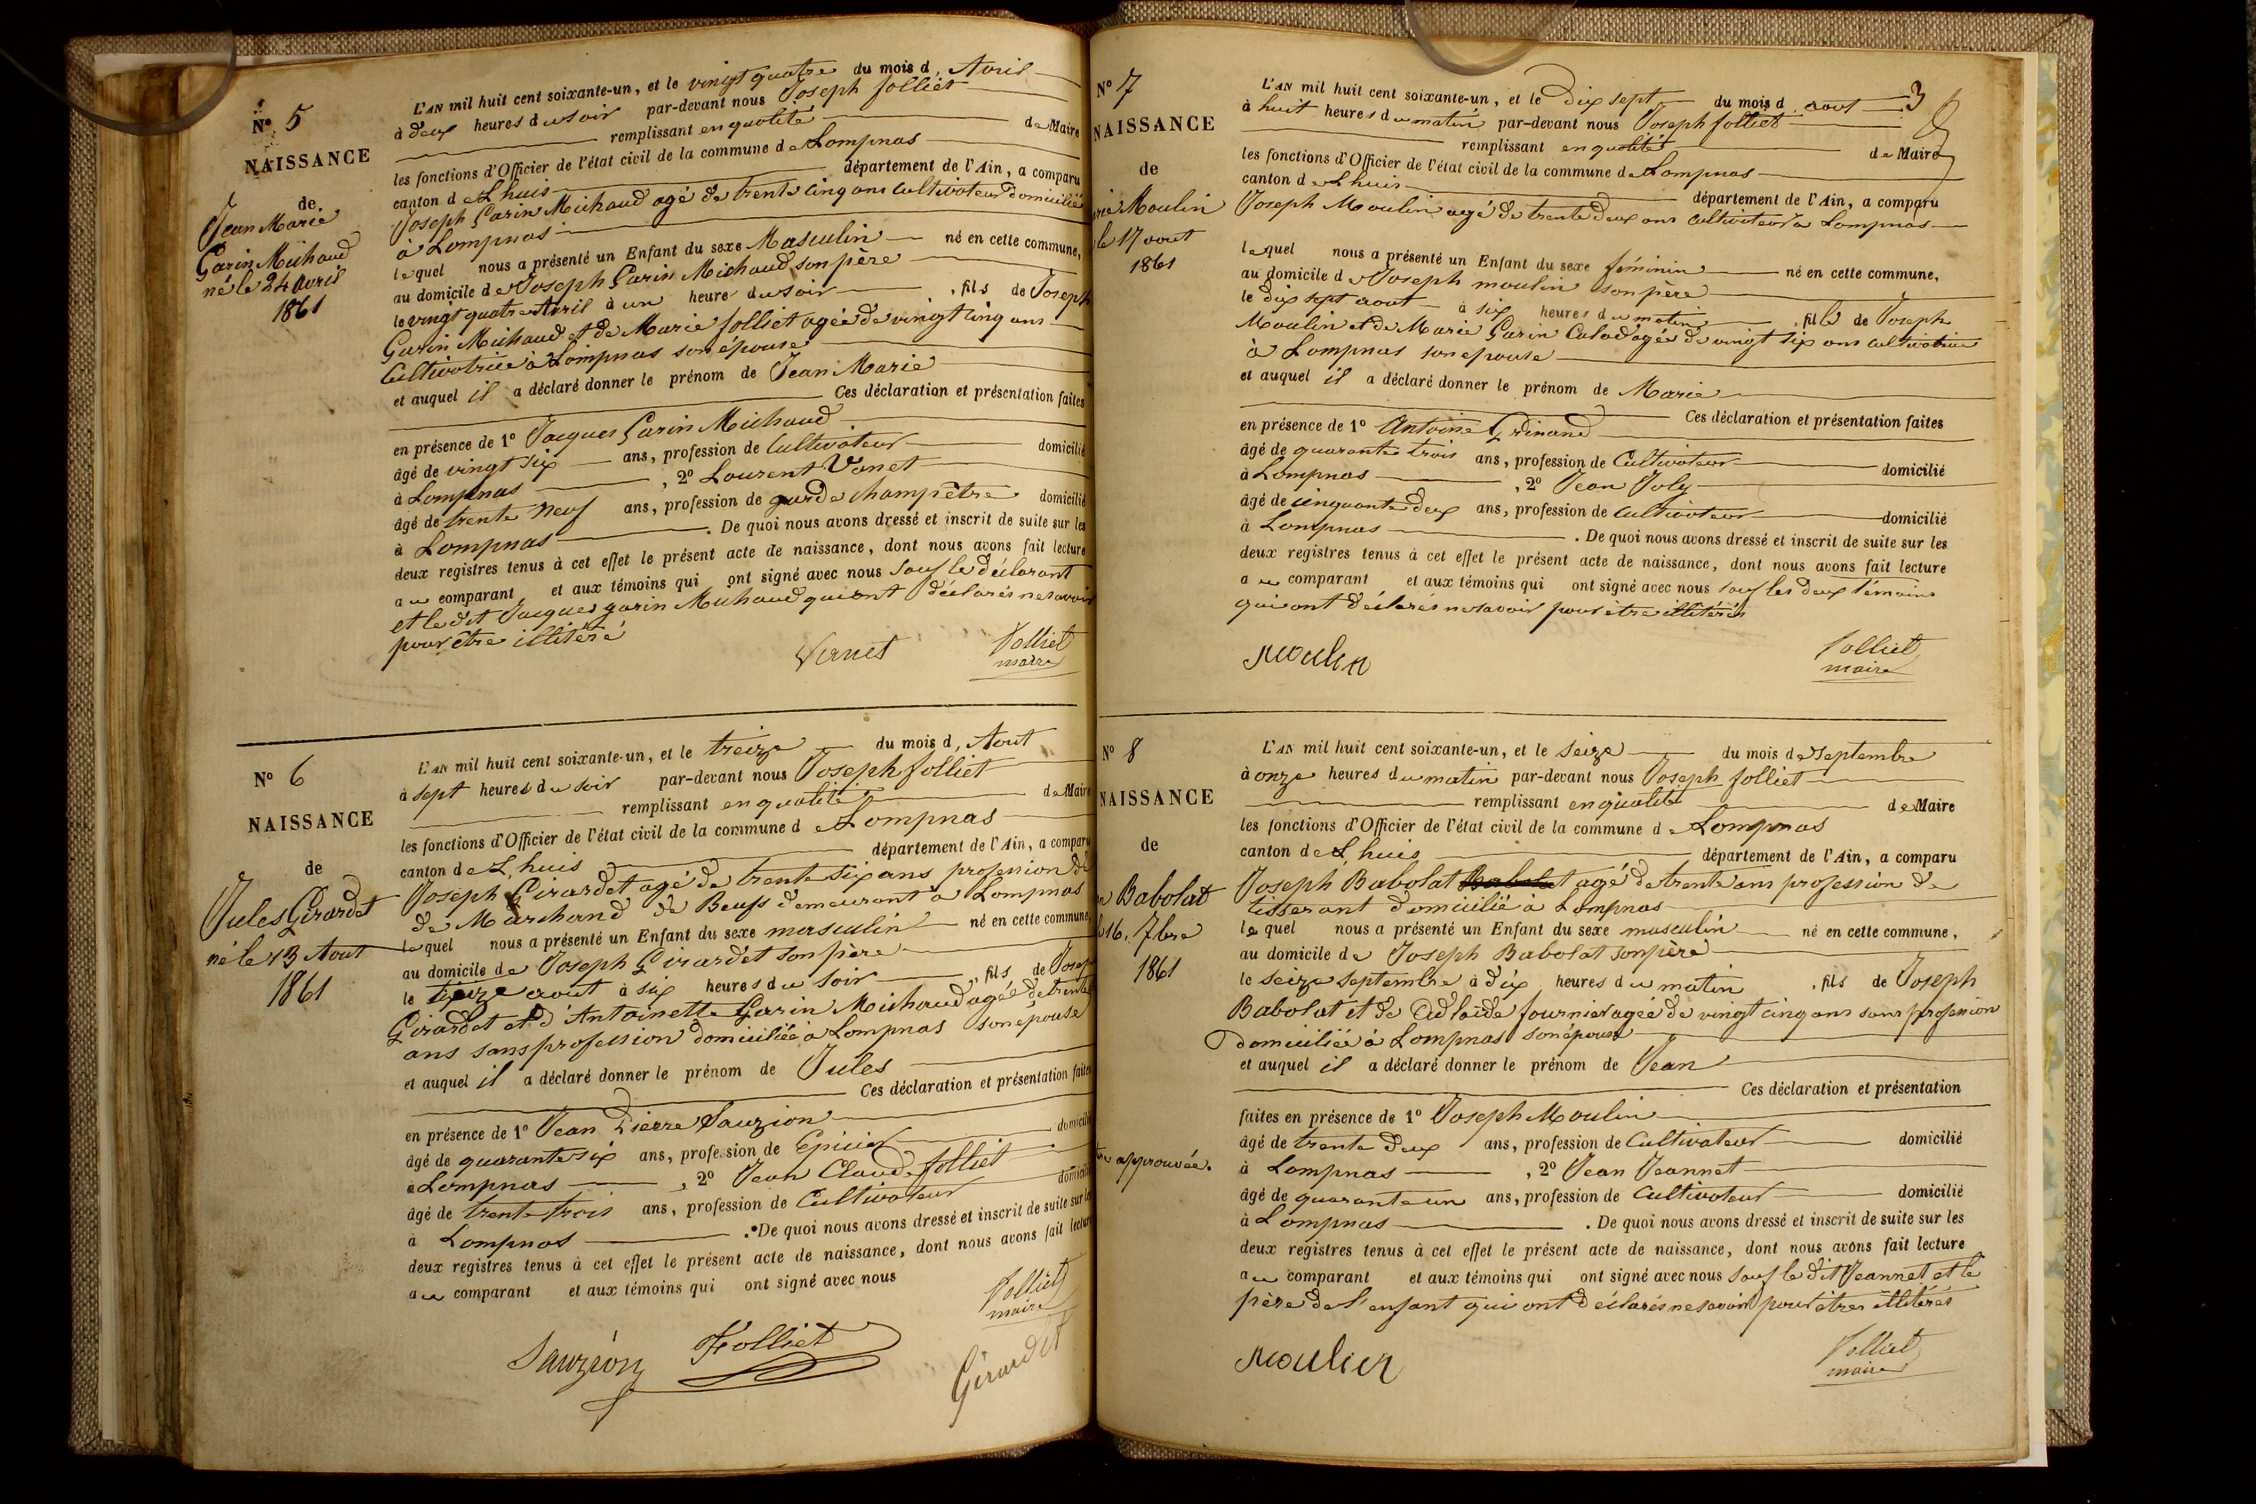 N° 5
NAISSANCE
de
Jean Marie
Garin Michaud
né le 24 avril
1861
L'AN mil huit cent soixante-un, et le vingt quatre du mois d Avril
à deux heures du soir par-devant nous Joseph Jolliet
remplissant en qualité de Maire
les fonctions d'Officier de l'état civil de la commune de Lompnas
canton de Lhuis département de l'Ain, a comparu
Joseph Garin Michaud agé de trente cinq ans Cultivateur domicilié
à Lompnas
lequel nous a présenté un Enfant du sexe Masculin né en cette commune,
au domicile de Joseph Garin Michaud son père
le vingt quatre Avril à un heure du soir, fils de Joseph
Garin Michaud et de Marie Jolliet agée de vingt cinq ans
Cultivatrice à Lompnas son épouse
et auquel il a déclaré donner le prénom de Jean Marie
Ces déclaration et présentation faites
en présence de 1° Jacques Garin Michaud
âgé de vingt six ans, profession de Cultivateur domicilié
à Lompnas, 2° Laurent Vanet
âgé de trente neuf ans, profession de garde champêtre domicilié
à Lompnas. De quoi nous avons dressé et inscrit de suite sur les
deux registres tenus à cet effet le présent acte de naissance, dont nous avons fait lecture
au comparant et aux témoins qui ont signé avec nous sauf le déclarant
et le dit Jacques garin Michaud qui ont déclarés ne savoir
pour être illitéré
Vanet
Jolliet
maire
N° 6
NAISSANCE
de
Jules Girardet
né le 13 Aout
1861
L'AN mil huit cent soixante-un, et le treize du mois d, Aout
à sept heures du soir par-devant nous Joseph Jolliet
remplissant en qualité de Maire
les fonctions d'Officier de l'état civil de la commune de Lompnas
canton de Lhuis département de l'Ain, a comparu
Joseph Girardet agé de trente six ans profession de
de Marchand de Beufs demeurant à Lompnas
lequel nous a présenté un Enfant du sexe masculin né en cette commune
au domicile de Joseph Girardet son père
le treize aout à six heures du soir, fils de Joseph
Girardet et d'Antoinette Garin Michaud agée de trente
ans sans profession domiciliée à Lompnas son epouse
et auquel il a déclaré donner le prénom de Jules
Ces déclaration et présentation faites
en présence de 1° Jean Pierre Sauzion
âgé de quarante six ans, profession de Epicier domicilié
à Lompnas, 2° Jean Claude Jolliet
âgé de trente trois ans, profession de Cultivateur domicilié
à Lompnas. De quoi nous avons dressé et inscrit de suite sur les
deux registres tenus à cet effet le présent acte de naissance, dont nous avons fait lecture
au comparant et aux témoins qui ont signé avec nous
Jolliet
maire
Sauzion
Jolliet
Girardet
3
N° 7
NAISSANCE
de
Moulin
le 17 aout
1861
L'AN mil huit cent soixante-un, et le Dix sept du mois d aout
à huit heures du matin par-devant nous Joseph Jolliet
remplissant en qualité de Maire
les fonctions d'Officier de l'état civil de la commune de Lompnas
canton de Lhuis département de l'Ain, a comparu
Joseph Moulin agé de trente deux ans cultivateur à Lompnas
lequel nous a présenté un Enfant du sexe féminin né en cette commune,
au domicile de Joseph moulin son père
le dix sept aout à six heures du matin, fille de Joseph
Moulin et de Marie Garin Calad agée de vingt six ans cultivatrice
à Lompnas son epouse
et auquel il a déclaré donner le prénom de Marie
Ces déclaration et présentation faites
en présence de 1° Antoine Grinand
âgé de quarante trois ans, profession de Cultivateur domicilié
à Lompnas, 2° Jean Joly
âgé de cinquante deux ans, profession de Cultivateur domicilié
à Lompnas. De quoi nous avons dressé et inscrit de suite sur les
deux registres tenus à cet effet le présent acte de naissance, dont nous avons fait lecture
au comparant et aux témoins qui ont signé avec nous sauf les deux témoins
qui ont déclarés ne savoir pour être illitérés
Moulin
Jolliet
maire
N° 8
NAISSANCE
de
Babolat
16. 7bre
1861
approuvée.
L'AN mil huit cent soixante-un, et le seize du mois de septembre
à onze heures du matin par-devant nous Joseph Jolliet
remplissant en qualité de Maire
les fonctions d'Officier de l'état civil de la commune de Lompnas
canton de Lhuis département de l'Ain, a comparu
Joseph Babolat Babolat agé de trente ans profession de
tisserant domicilié à Lompnas
lequel nous a présenté un Enfant du sexe masculin né en cette commune,
au domicile de Joseph Babolat son père
le seize septembre à dix heures du matin, fils de Joseph
Babolat et de Adlaide fournier agée de vingt cinq ans sans profession
domiciliée à Lompnas son épouse
et auquel il a déclaré donner le prénom de Jean
Ces déclaration et présentation
faites en présence de 1° Joseph Moulin
âgé de trente deux ans, profession de Cultivateur domicilié
à Lompnas, 2° Jean Jeannet
âgé de quarante un ans, profession de Cultivateur domicilié
à Lompnas. De quoi nous avons dressé et inscrit de suite sur les
deux registres tenus à cet effet le présent acte de naissance, dont nous avons fait lecture
au comparant et aux témoins qui ont signé avec nous sauf le dit Jeannet et le
père de l'enfant qui ont déclarés ne savoir pour être illitérés
Moulin
Jolliet
maire